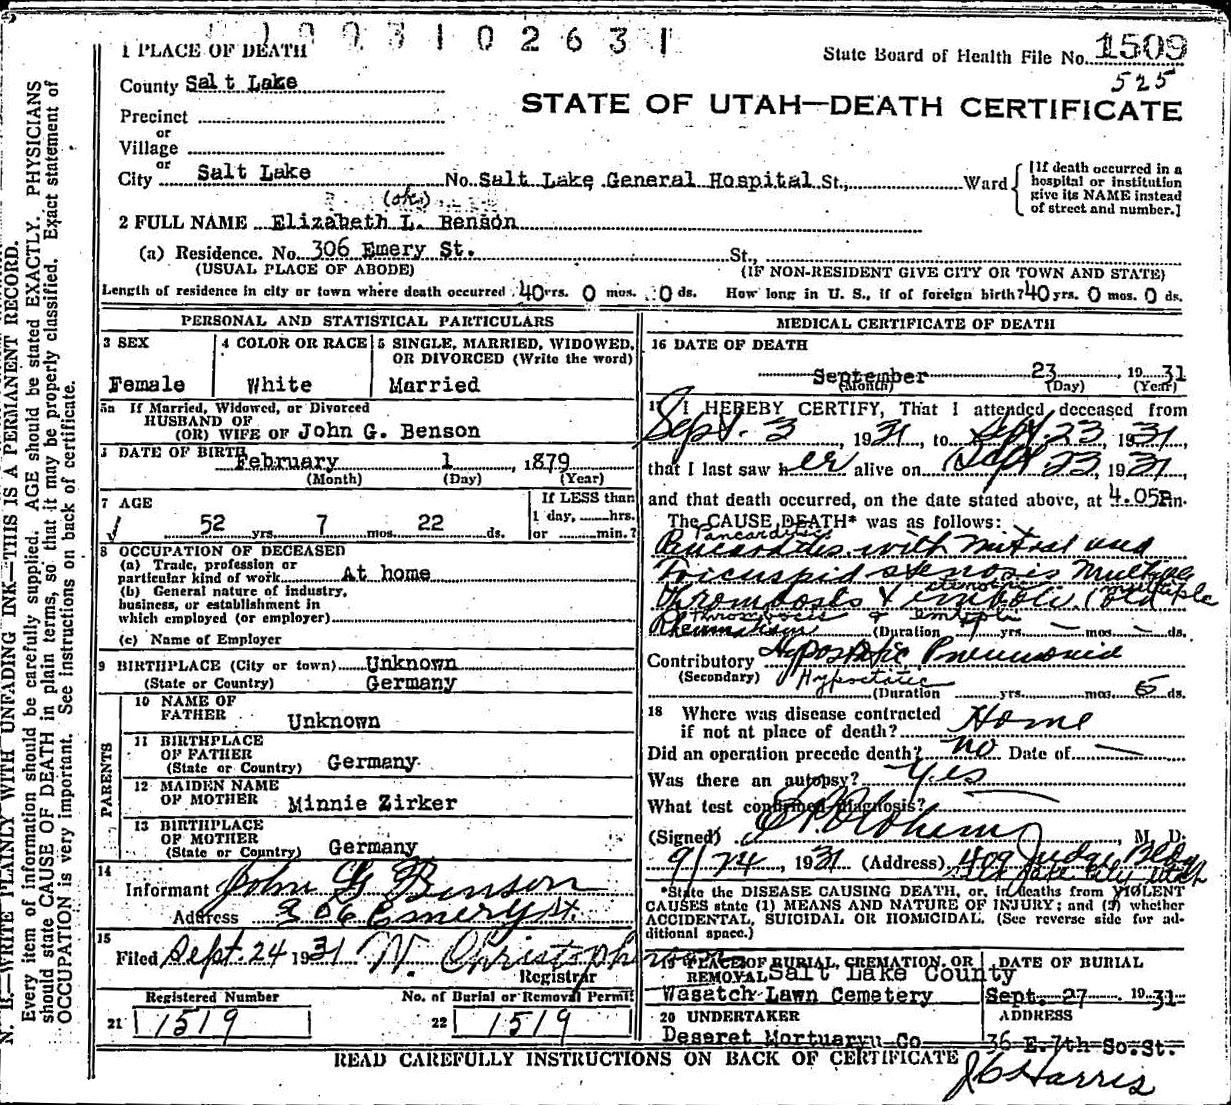 1 0 0 3 1 0 2 6 3 1
1 PLACE OF DEATH
State Board of Health File No. 1509
525
County Salt Lake
STATE OF UTAH—DEATH CERTIFICATE
Precinct
or
Village
or
City Salt Lake No. Salt Lake General Hospital St., Ward
[If death occurred in a
hospital or institution
give its NAME instead
of street and number.]
(ok)
2 FULL NAME Elizabeth L. Benson
(a) Residence. No. 306 Emery St. St.,
(USUAL PLACE OF ABODE) (IF NON-RESIDENT GIVE CITY OR TOWN AND STATE)
Length of residence in city or town where death occurred 40 yrs. 0 mos. 0 ds. How long in U. S., if of foreign birth? 40 yrs. 0 mos. 0 ds.
PERSONAL AND STATISTICAL PARTICULARS
3 SEX
Female
4 COLOR OR RACE
White
5 SINGLE, MARRIED, WIDOWED,
OR DIVORCED (Write the word)
Married
5a If Married, Widowed, or Divorced
HUSBAND OF
(OR) WIFE OF John G. Benson
DATE OF BIRTH February 1, 1879
(Month) (Day) (Year)
7 AGE
52 yrs. 7 mos. 22 ds.
If LESS than
1 day, hrs.
or min.?
8 OCCUPATION OF DECEASED
(a) Trade, profession or
particular kind of work At home
(b) General nature of industry,
business, or establishment in
which employed (or employer)
(c) Name of Employer
9 BIRTHPLACE (City or town) Unknown
(State or Country) Germany
PARENTS
10 NAME OF
FATHER Unknown
11 BIRTHPLACE
OF FATHER
(State or Country) Germany
12 MAIDEN NAME
OF MOTHER Minnie Zirker
13 BIRTHPLACE
OF MOTHER
(State or Country) Germany
14
Informant John G Benson
Address 306 Emery St.
15
Filed Sept. 24 1931 W. Christopherson
Registrar
Registered Number
21 1519
No. of Burial or Removal Permit
22 1519
MEDICAL CERTIFICATE OF DEATH
16 DATE OF DEATH
September 23, 1931
(Month) (Day) (Year)
17 I HEREBY CERTIFY, That I attended deceased from
Sept. 3, 1931, to Sept. 23, 1931,
that I last saw her alive on Sept 23, 1931,
and that death occurred, on the date stated above, at 4.05P m.
The CAUSE DEATH* was as follows:
Pancarditis
Pancarditis with mitral and
Tricuspid stenosis Multiple
stenosis multiple
Thrombosis & emboli. (old
Thrombosis & emboli
Rheumatism (Duration yrs. — mos. — ds.
Contributory Hypostatic Pneumonia
(Secondary) Hypostatic
(Duration yrs. mos. 5 ds.
18 Where was disease contracted
if not at place of death? Home
Did an operation precede death? no Date of —
Was there an autopsy? Yes
What test confirmed diagnosis?
(Signed) M. D.
9/24, 1931 (Address) 409 Judge Bldg
Salt Lake City, Utah
*State the DISEASE CAUSING DEATH, or, in deaths from VIOLENT
CAUSES state (1) MEANS AND NATURE OF INJURY; and (2) whether
ACCIDENTAL, SUICIDAL OR HOMICIDAL. (See reverse side for ad-
ditional space.)
19 PLACE OF BURIAL, CREMATION, OR
REMOVAL Salt Lake County
Wasatch Lawn Cemetery
DATE OF BURIAL
Sept. 27 1931
20 UNDERTAKER
Deseret Mortuary Co
ADDRESS
36 E. 7th So. St.
READ CAREFULLY INSTRUCTIONS ON BACK OF CERTIFICATE
J C Harris
N. B.—WRITE PLAINLY WITH UNFADING INK—THIS IS A PERMANENT RECORD.
Every item of information should be carefully supplied. AGE should be stated EXACTLY. PHYSICIANS
should state CAUSE OF DEATH in plain terms, so that it may be properly classified. Exact statement of
OCCUPATION is very important. See instructions on back of certificate.